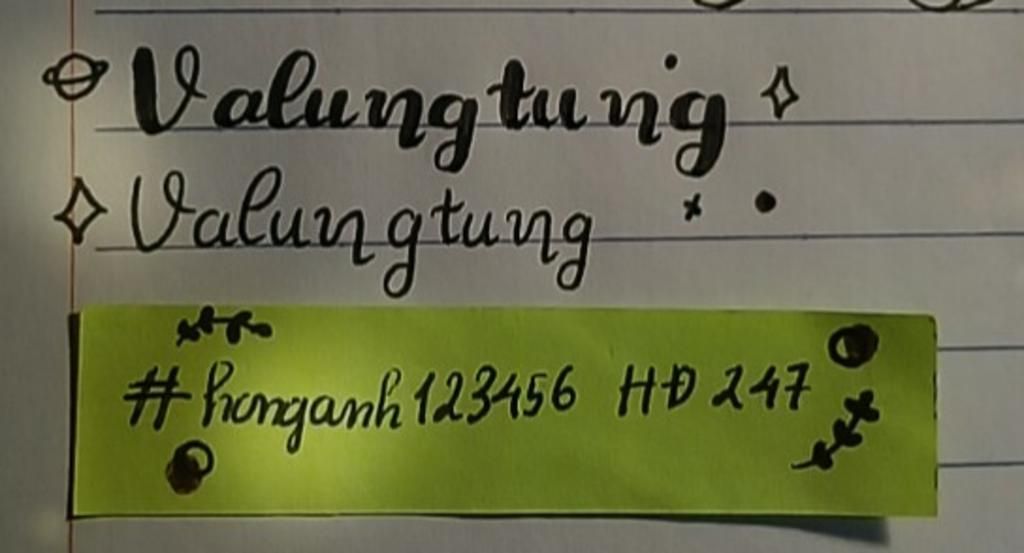 Valungtung
Valungtung
#honganh123456 HĐ 247